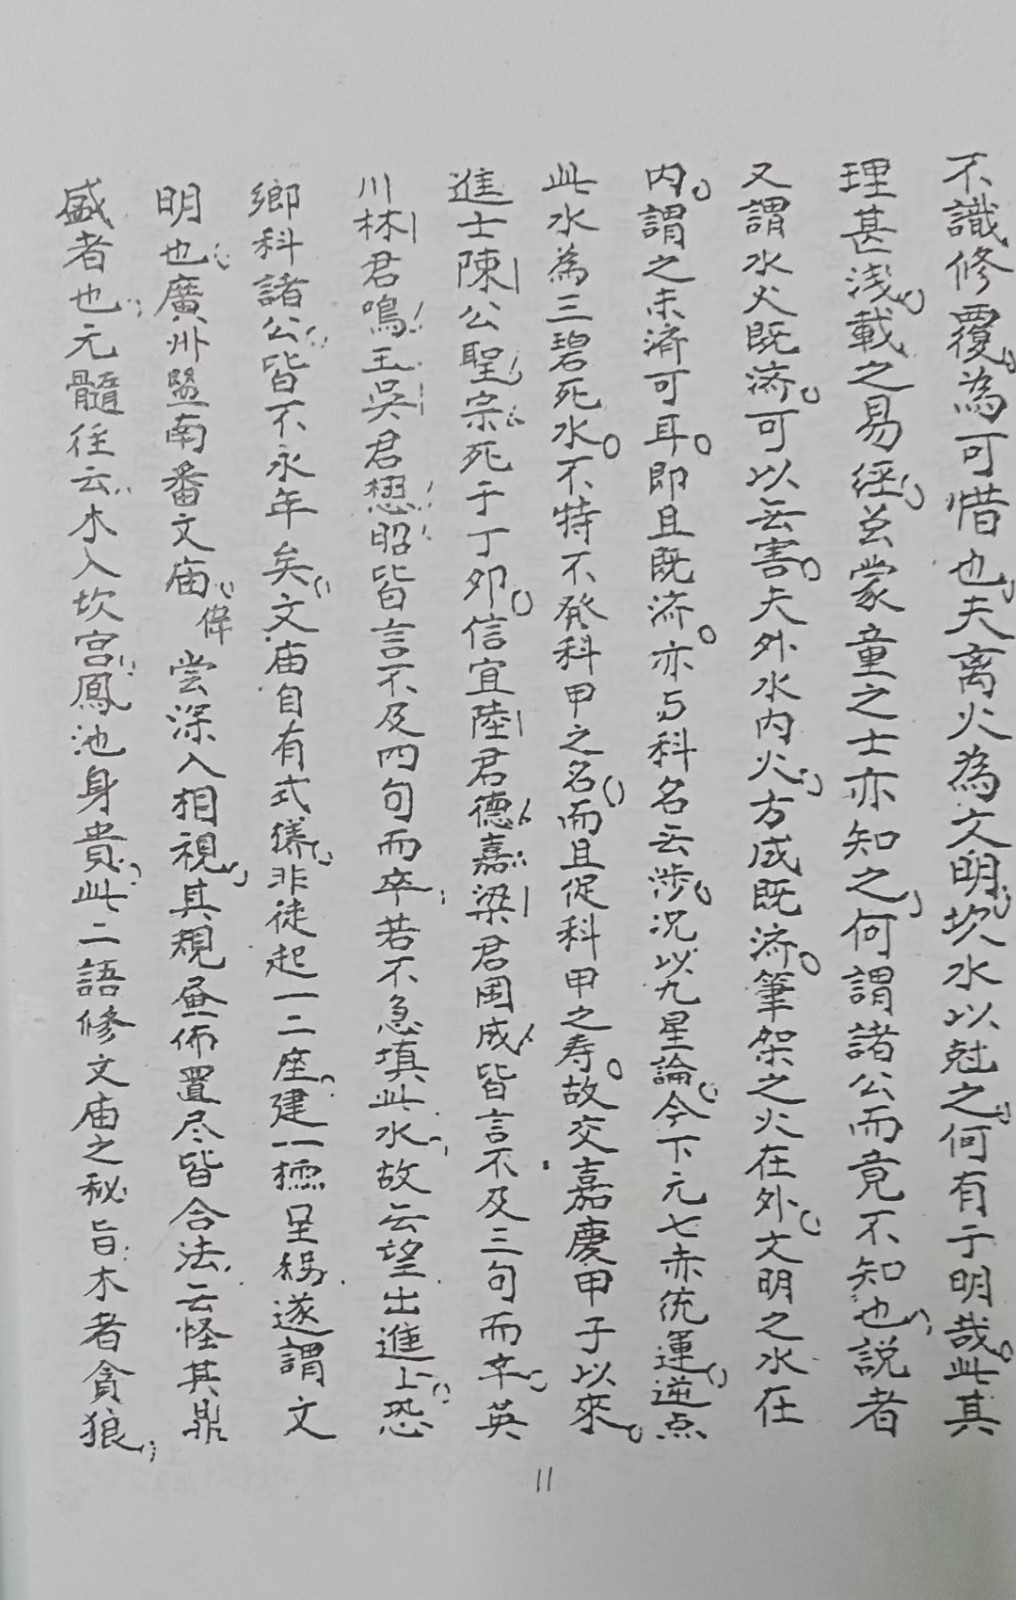 不識修覆。為可惜也，夫离火為文明，坎水以尅之，何有于明哉。此其
理甚浅，載之易經，玆蒙童之士亦知之，何謂諸公而竟不知也，説者
又謂水火既济。可以無害。夫外水内火，方成既济。筆架之火在外，文明之水在
内，謂之未済可耳。即且既济。亦与科名無涉，况以九星論，今下元七赤統運，逆点
此水為三碧死水。不特不發科甲之名，而且促科甲之寿。故交嘉慶甲子以來，
進士陳公聖宗死于丁卯。信宜陸君德嘉梁君国成皆言不及三句而卒，英
川林君鳴玉吳君懋昭皆言不及四句而卒，若不急填此水，故云望出進上，恐
鄉科諸公，皆不永年矣，文庙自有式様，非徒起一二座，建一標呈楊，遂謂文
明也，廣州曁南番文庙，偉嘗深入相視，其規叠佈置尽皆合法，云怪其鼎
盛者也，元髓徃云，木入坎宫，鳳池身貴，此二語修文庙之秘旨，木者貪狼，
11